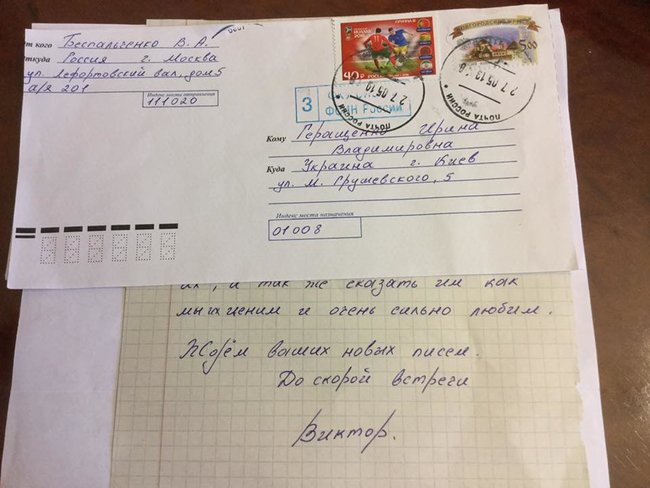 от кого Беспальченко В. А.
откуда Россия г. Москва
ул. Лефортовский вал, дом 5
а/я 201
Индекс места отправления
111020
FIFA WORLD CUP
RUSSIA
2018
ГРУППА H
40 РОССИЯ
НОВГОРОДСКИЙ КРЕМЛЬ
5,00
ПОЧТА РОССИИ
ПОЧТА РОССИИ
3
ФСИН России
Кому Геращенко Ирина
Владимировна
Куда Украина г. Киев
ул. М. Грушевского, 5
Индекс места назначения
01008
их, и так же сказать им как
мы их ценим и очень сильно любим.
Ждём ваших новых писем.
До скорой встречи
Виктор.